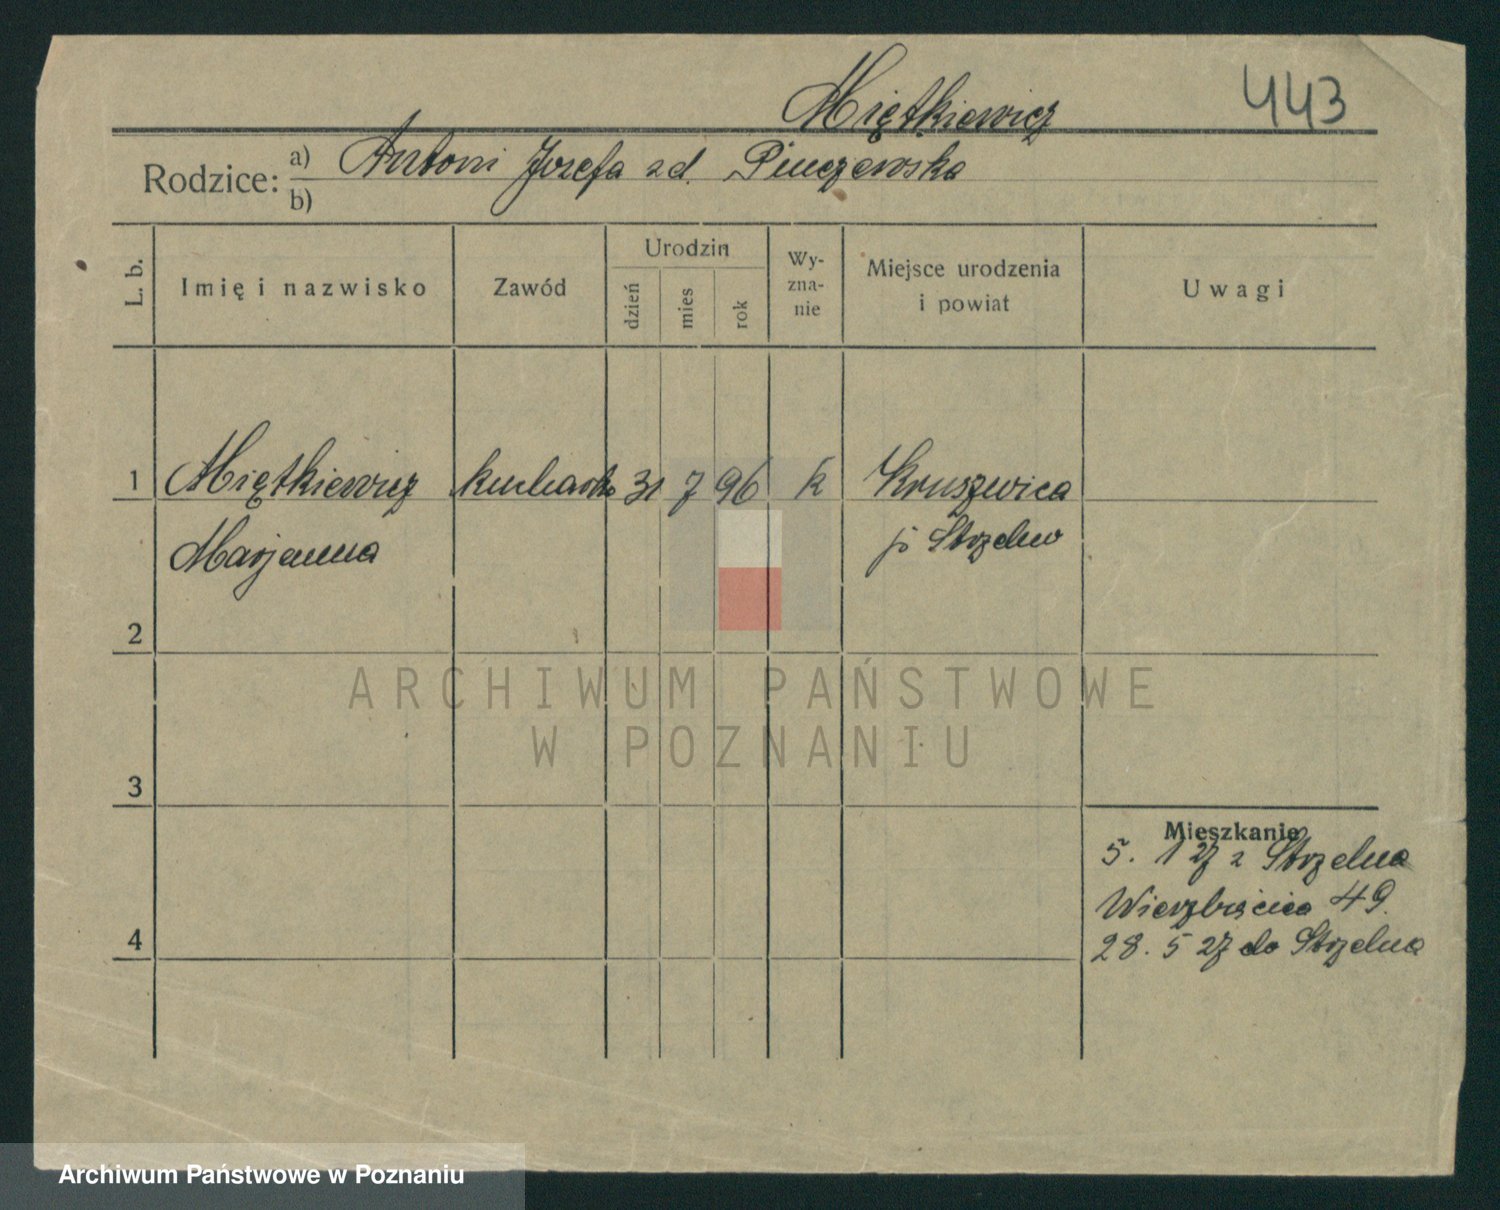 Miętkiewicz 443
Rodzice: a) Antoni Jozefa zd. Pinczewska
b)
L. b. Imię i nazwisko Zawód Urodzin dzień mies rok Wy- zna- nie Miejsce urodzenia i powiat Uwagi
1 Miętkiewicz kucharka 31 7 96 k Kruszwica
Marjanna p Strzelno
2
ARCHIWUM PAŃSTWOWE
W POZNANIU
3
Mieszkanie
5. 1 27 z Strzelna
Wierzbięcice 49.
4
28. 5 27 do Strzelna
Archiwum Państwowe w Poznaniu